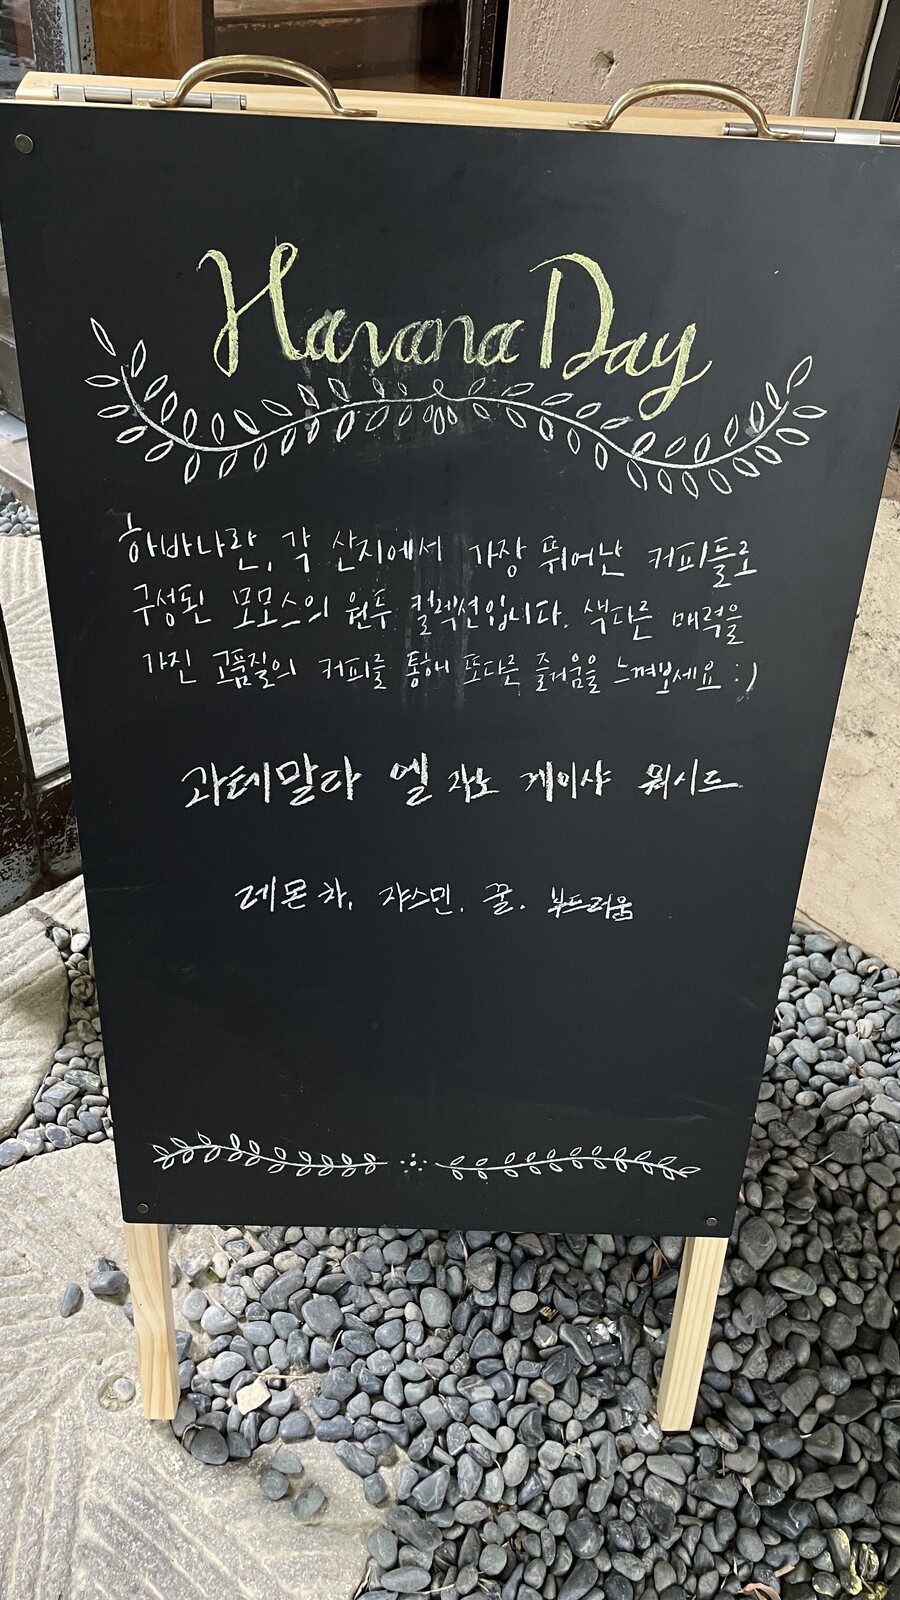 Havana Day
하바나란, 각 산지에서 가장 뛰어난 커피들로
구성된 모모스의 원두 컬렉션입니다. 색다른 매력을
가진 고품질의 커피를 통해 또다른 즐거움을 느껴보세요 :)
과테말라 엘 게이샤 워시드
레몬 차, 쟈스민, 꿀, 부드러움